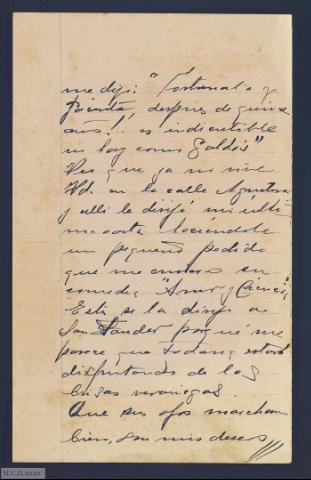 me dijo: "Fortunata y
Jacinta, después de quince
años!! es indiscutible
no hay como Galdós"
Veo que ya no vive
Vd. en la calle Aguilera
y allí le dirijí mi última
carta haciéndole
un pequeño pedido
que me enviara su
comedia "Amor y Ciencia"
Esta se la dirijo a
Santander porqué me
parece que todavía estará
disfrutando de las
brisas veraniegas.
Que sus ojos marchan
bien, son mis deseos
M.C.D.2020